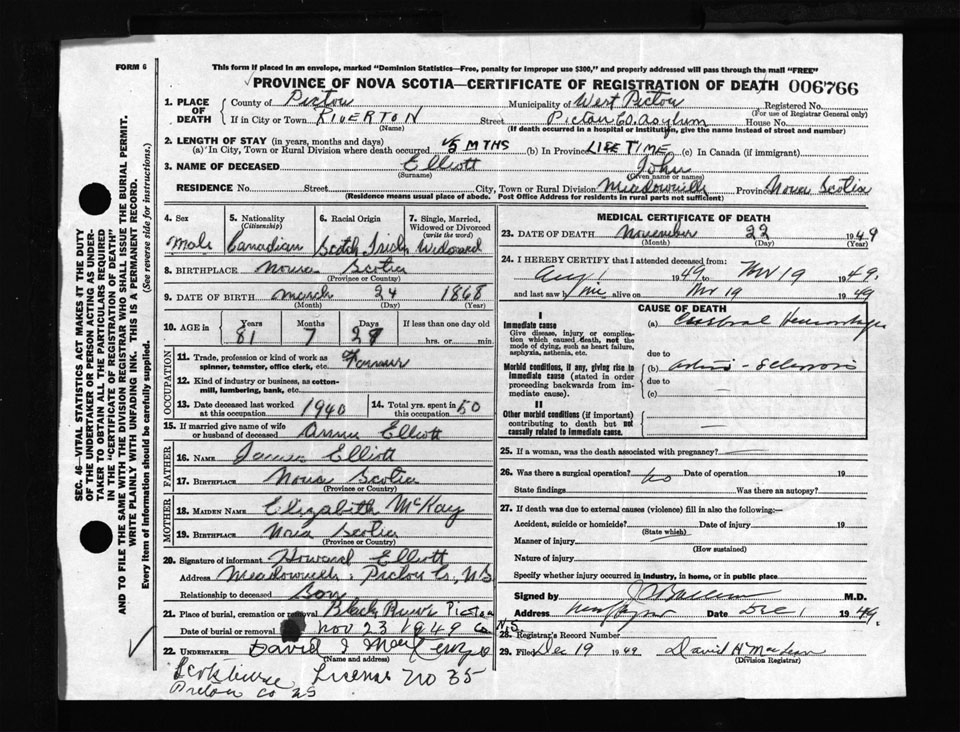 FORM 6
This form if placed in an envelope, marked "Dominion Statistics—Free, penalty for improper use $300," and properly addressed will pass through the mail "FREE"
PROVINCE OF NOVA SCOTIA—CERTIFICATE OF REGISTRATION OF DEATH 006766
1. PLACE OF DEATH
County of Pictou Municipality of West Pictou Registered No.
(For use of Registrar General only)
If in City or Town RIVERTON Street Pictou Co. Asylum House No.
(Name) (If death occurred in a hospital or institution, give the name instead of street and number)
2. LENGTH OF STAY (in years, months and days)
(a) In City, Town or Rural Division where death occurred 5 MTHS (b) In Province LIFE TIME (c) In Canada (if immigrant)
3. NAME OF DECEASED Elliott John
(Surname) (Given name or names)
RESIDENCE No. Street City, Town or Rural Division Meadowville Province Nova Scotia
(Residence means usual place of abode. Post Office Address for residents in rural parts not sufficient)
4. Sex Male
5. Nationality (Citizenship) Canadian
6. Racial Origin Scotch Irish
7. Single, Married, Widowed or Divorced (write the word) Widowed
8. BIRTHPLACE Nova Scotia
(Province or Country)
9. DATE OF BIRTH March 24 1868
(Month) (Day) (Year)
10. AGE in Years 81 Months 7 Days If less than one day old hrs. or min.
OCCUPATION
11. Trade, profession or kind of work as spinner, teamster, office clerk, etc. Farmer
12. Kind of industry or business, as cotton-mill, lumbering, bank, etc.
13. Date deceased last worked at this occupation 1940
14. Total yrs. spent in this occupation 50
15. If married give name of wife or husband of deceased Annie Elliott
FATHER
16. NAME James Elliott
17. BIRTHPLACE Nova Scotia
(Province or Country)
MOTHER
18. MAIDEN NAME Elizabeth McKay
19. BIRTHPLACE Nova Scotia
(Province or Country)
20. Signature of informant Howard Elliott
Address Meadowville, Pictou Co., N.S.
Relationship to deceased Son
21. Place of burial, cremation or removal Black River Pictou Co N.S.
Date of burial or removal Nov 23 1949
22. UNDERTAKER David J
(Name and address)
Scotsburn License No 35
Pictou Co NS
MEDICAL CERTIFICATE OF DEATH
23. DATE OF DEATH November 22 1949
(Month) (Day) (Year)
24. I HEREBY CERTIFY that I attended deceased from:
Aug 1 1949 to Nov 19 1949.
and last saw him alive on Nov 19 1949
CAUSE OF DEATH
I
Immediate cause
Give disease, injury or complication which caused death, not the mode of dying, such as heart failure, asphyxia, asthenia, etc.
(a) Cerebral Hemorrhage
due to
Morbid conditions, if any, giving rise to immediate cause (stated in order proceeding backwards from immediate cause).
(b) Arterio-Sclerosis
due to
(c)
II
Other morbid conditions (if important) contributing to death but not causally related to immediate cause.
25. If a woman, was the death associated with pregnancy?
26. Was there a surgical operation? No Date of operation 19
State findings Was there an autopsy?
27. If death was due to external causes (violence) fill in also the following:—
Accident, suicide or homicide? Date of injury 19
(State which)
Manner of injury
(How sustained)
Nature of injury
Specify whether injury occurred in industry, in home, or in public place
Signed by M.D.
Address Date Dec 1 1949
28. Registrar's Record Number
29. Filed Dec 19 1949 David H MacLean
(Division Registrar)
SEC. 46—VITAL STATISTICS ACT MAKES IT THE DUTY
OF THE UNDERTAKER OR PERSON ACTING AS UNDER-
TAKER TO OBTAIN ALL THE PARTICULARS REQUIRED
IN THE "CERTIFICATE OF REGISTRATION OF DEATH"
AND TO FILE THE SAME WITH THE DIVISION REGISTRAR WHO SHALL ISSUE THE BURIAL PERMIT.
WRITE PLAINLY WITH UNFADING INK. THIS IS A PERMANENT RECORD.
Every item of Information should be carefully supplied. (See reverse side for instructions.)